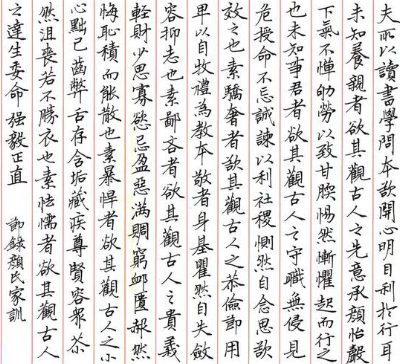 夫所以讀書學問本欲開心明目利於行耳
未知養親者欲其觀古人之先意承顏怡聲
下氣不憚劬勞以致甘腝惕然慚懼起而行之
也未知事君者欲其觀古人之守職無侵見
危授命不忘誠諫以利社稷惻然自念思欲
效之也素驕奢者欲其觀古人之恭儉節用
卑以自牧禮為教本敬者身基瞿然自失斂
容抑志也素鄙吝者欲其觀古人之貴義
輕財少思寡慾忌盈惡滿賙窮卹匱赧然
悔恥積而能散也素暴悍者欲其觀古人之小
心黜己齒弊舌存含垢藏疾尊賢容眾苶
然沮喪若不勝衣也素怯懦者欲其觀古人
之達生委命強毅正直 節錄顏民家訓